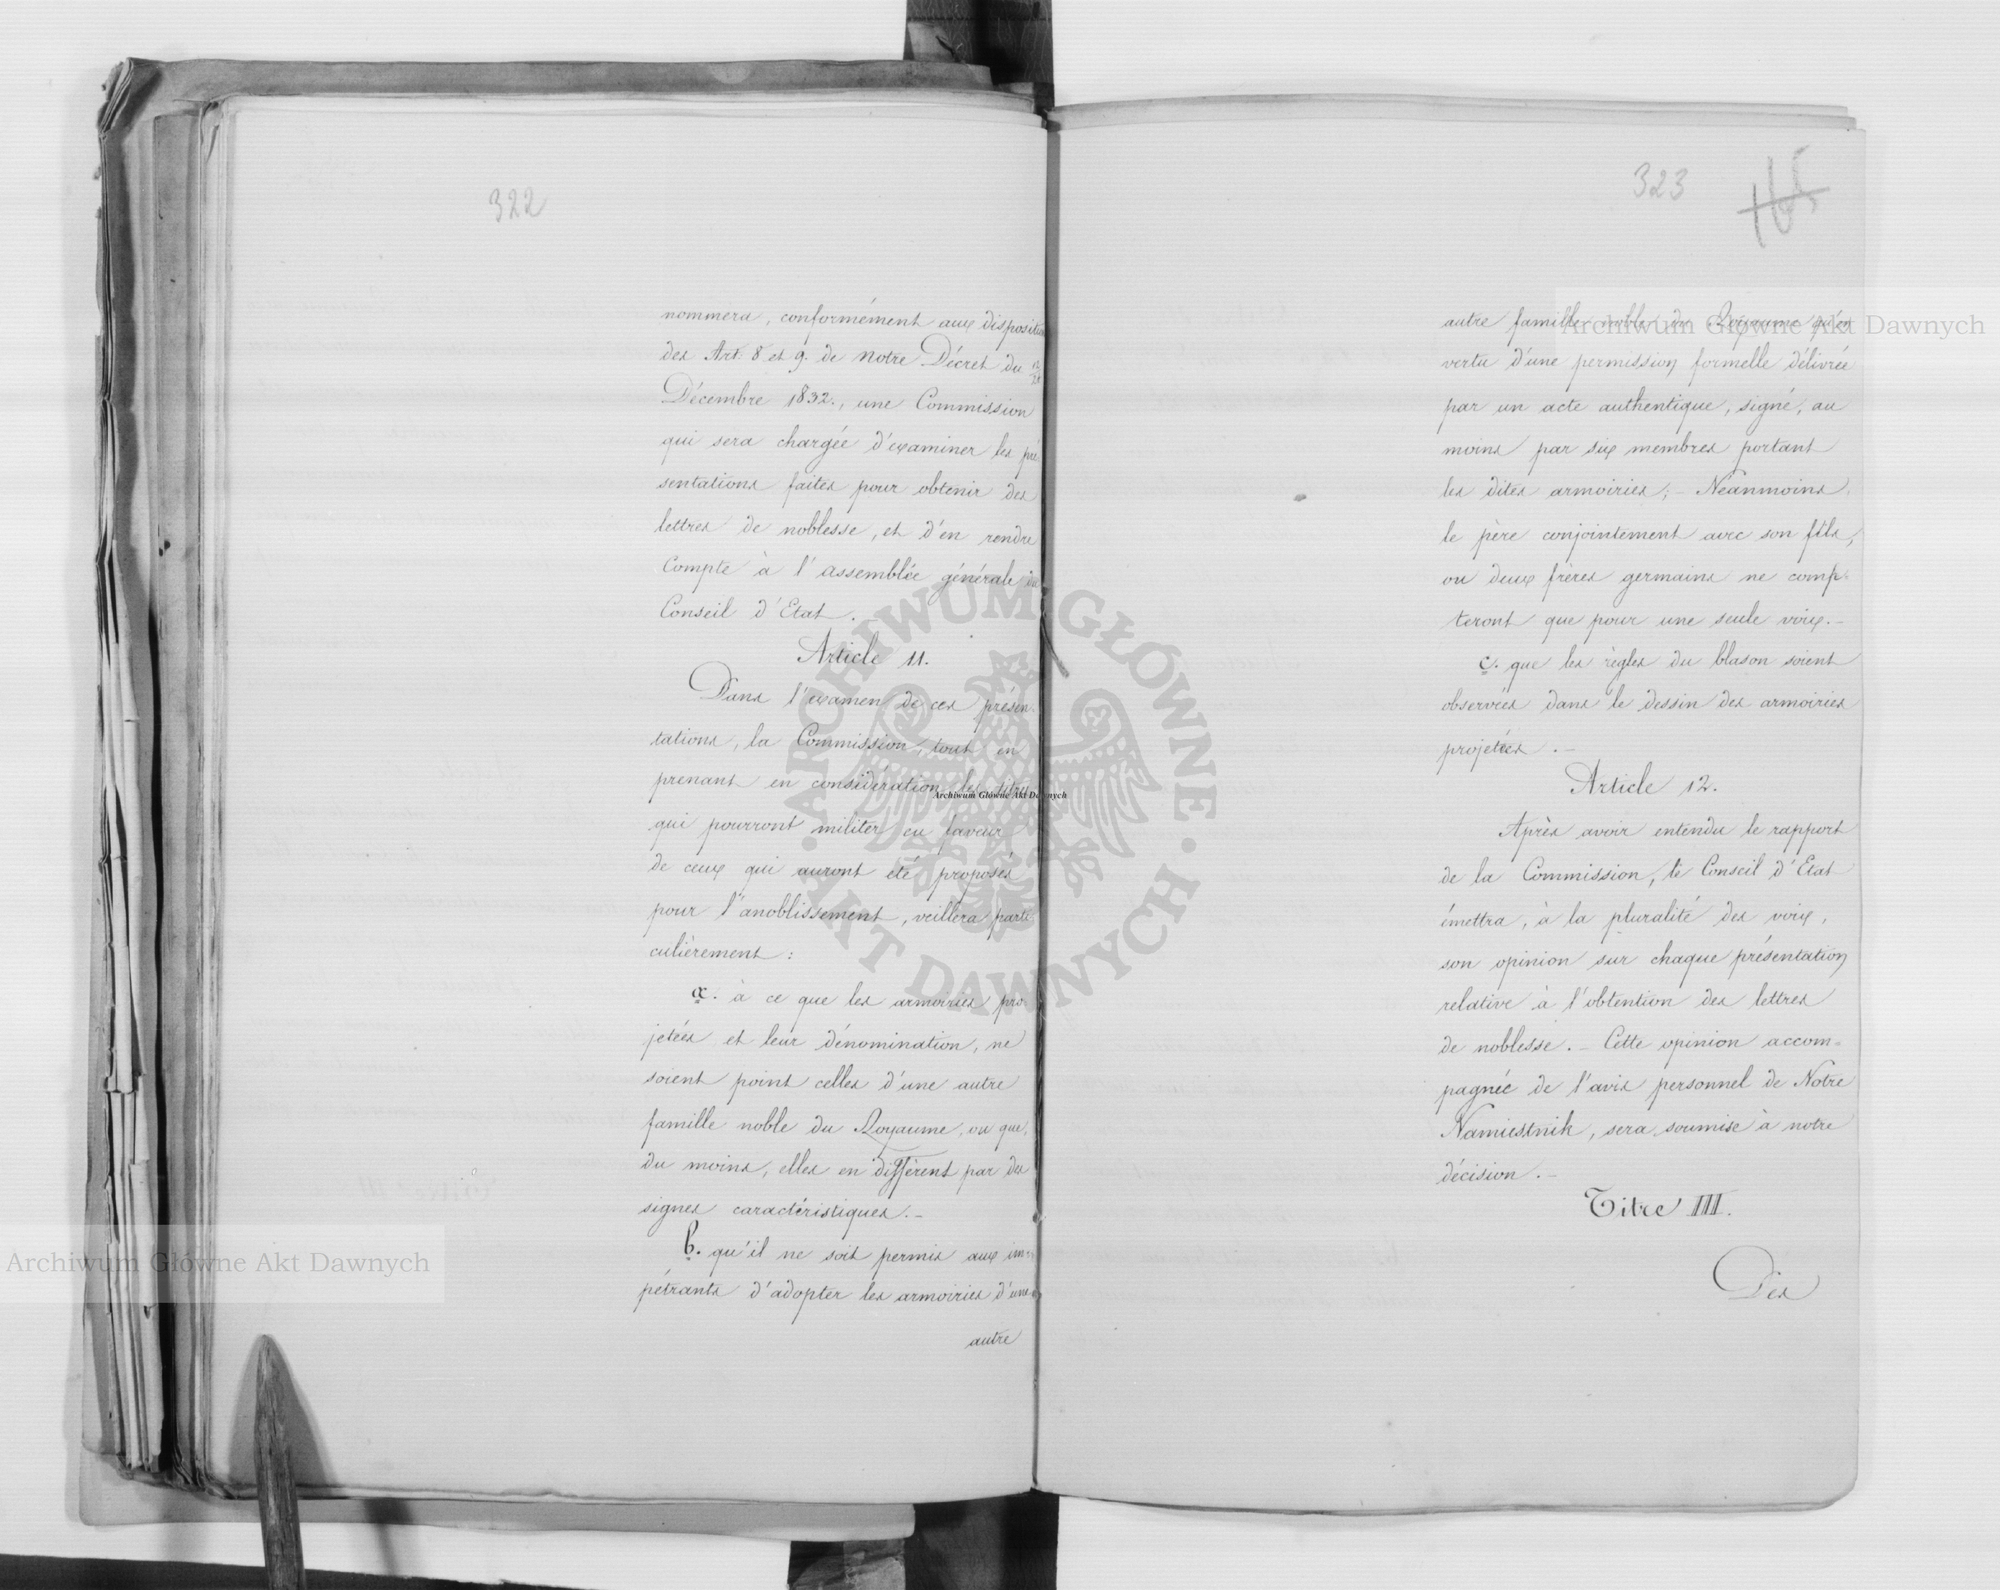 322
nommera, conformément aux disposition
des Art. 8 et 9. de notre Décret du
Décembre 1832., une Commission
qui sera chargée d'examiner les pré
sentations faites pour obtenir des
lettres de noblesse, et d'en rendre
Compte à l'assemblée générale du
Conseil d'Etat.
Article 11.
Dans l'examen de ces présen-
tations, la Commission, tout en
prenant en considération les titres
qui pourront militer en faveur
de ceux qui auront été proposés
pour l'anoblissement, veillera parti-
culièrement:
a. à ce que les armoiries pro-
jetées et leur dénomination, ne
soient point celles d'une autre
famille noble du Royaume, ou que,
du moins, elles en diffèrent par des
signes caractéristiques.-
b. qu'il ne soit permis aux im-
pétrants d'adopter les armoiries d'une
autre
323
autre famille noble du Royaume qu'en
vertu d'une permission formelle délivrée
par un acte authentique, signé, au
moins par six membres portant
les dites armoiries; - Néanmoins,
le père conjointement avec son fils,
ou deux frères germains ne comp-
teront que pour une seule voix.-
c. que les règles du blason soient
observées dans le dessin des armoiries
projetées.-
Article 12.
Après avoir entendu le rapport
de la Commission, le Conseil d'Etat
émettra, à la pluralité des voix,
son opinion sur chaque présentation
relative à l'obtention des lettres
de noblesse. - Cette opinion accom=
pagnée de l'avis personnel de Notre
Namiestnik, sera soumise à notre
décision.-
Titre III.
Des
Archiwum Główne Akt Dawnych
Archiwum Główne Akt Dawnych
Archiwum Główne Akt Dawnych
ARCHIWUM GŁÓWNE AKT DAWNYCH